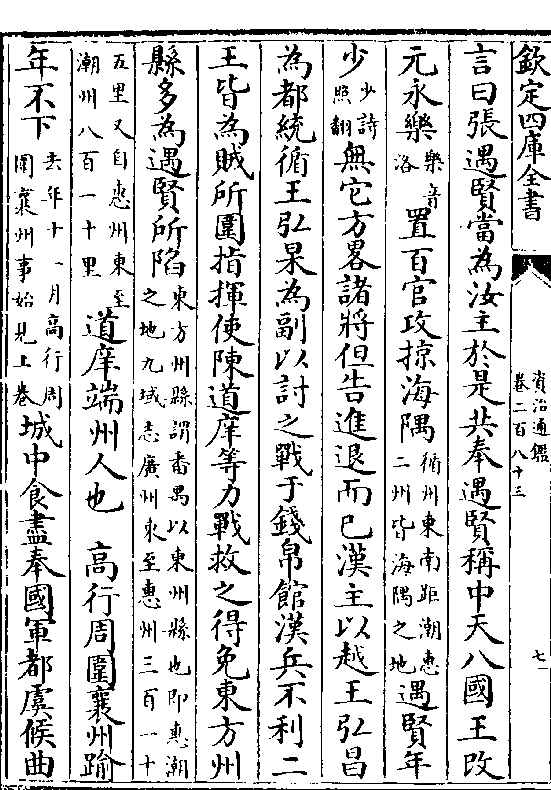 欽定四庫全書
資治通鑑
卷二百八十三
七
言曰張遇賢當為汝主於是共奉遇賢稱中天八國王改
元永樂
樂音
洛
置百官攻掠海隅
循州東南距潮惠
二州皆海隅之地
遇賢年
少
少詩
照翻
無它方畧諸將但告進退而已漢主以越王弘昌
為都統循王弘杲為副以討之戰于錢帛館漢兵不利二
王皆為賊所圍指揮使陳道庠等力戰救之得免東方州
縣多為遇賢所陷
東方州縣謂番禺以東州縣也即惠潮
之地九域志廣州東至惠州三百一十
五里又自惠州東至
潮州八百一十里
道庠端州人也　高行周圍襄州踰
年不下
去年十一月高行周
圍襄州事始見上卷
城中食盡奉國軍都虞候曲